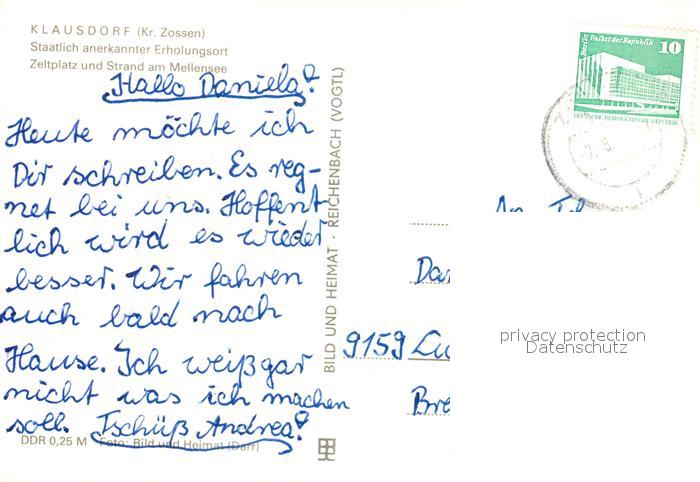 KLAUSDORF (Kr. Zossen)
Staatlich anerkannter Erholungsort
Zeltplatz und Strand am Mellensee
Hallo Daniela!
Heute möchte ich
Dir schreiben. Es reg-
net bei uns. Hoffent
lich wird es wieder
besser. Wir fahren
auch bald nach
Hause. Ich weiß gar
nicht was ich machen
soll. Tschüß Andrea!
DDR 0,25 M Foto: Bild und Heimat (Darr)
BILD UND HEIMAT · REICHENBACH (VOGTL)
Berlin Palast der Republik 10
DEUTSCHE DEMOKRATISCHE REPUBLIK
An
Da
9159 Lu
Bre
privacy protection
Datenschutz